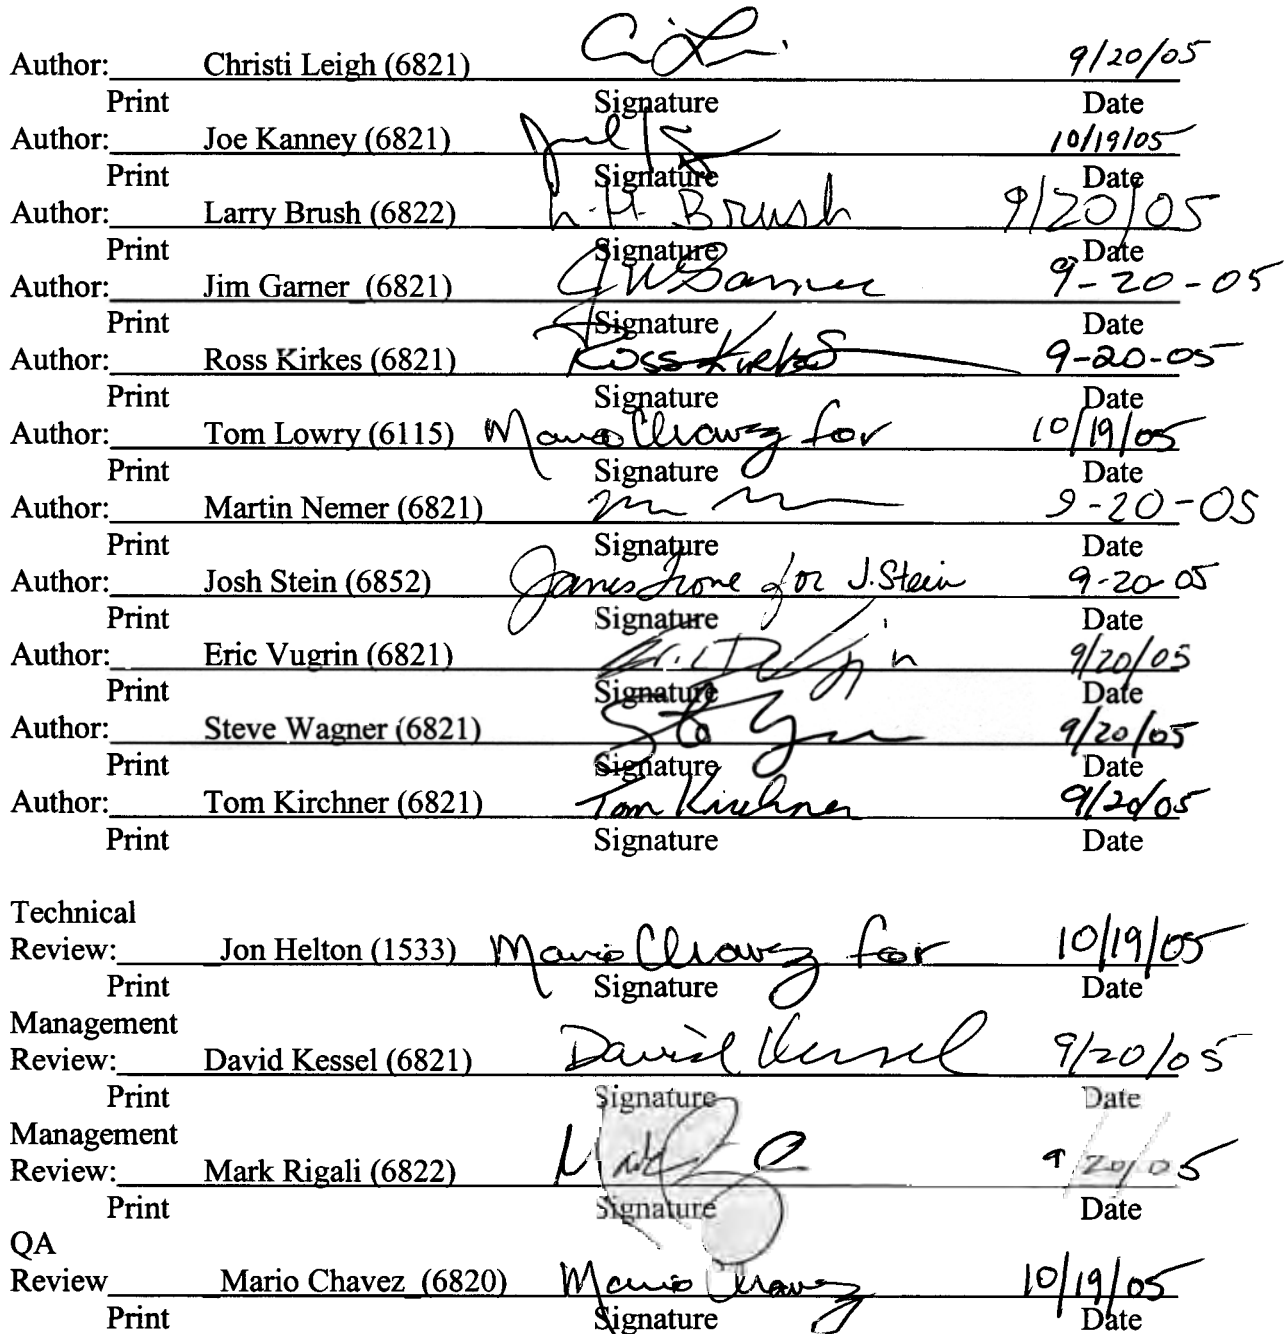 Author: Christi Leigh (6821) 9/20/05
Print Signature Date
Author: Joe Kanney (6821) 10/19/05
Print Signature Date
Author: Larry Brush (6822) L. H. Brush 9/20/05
Print Signature Date
Author: Jim Garner (6821) J W Garner 9-20-05
Print Signature Date
Author: Ross Kirkes (6821) Ross Kirkes 9-20-05
Print Signature Date
Author: Tom Lowry (6115) Mario Chavez for 10/19/05
Print Signature Date
Author: Martin Nemer (6821) 9-20-05
Print Signature Date
Author: Josh Stein (6852) James Trone for J. Stein 9-20-05
Print Signature Date
Author: Eric Vugrin (6821) 9/20/05
Print Signature Date
Author: Steve Wagner (6821) 9/20/05
Print Signature Date
Author: Tom Kirchner (6821) Tom Kirchner 9/20/05
Print Signature Date
Technical
Review: Jon Helton (1533) Mario Chavez for 10/19/05
Print Signature Date
Management
Review: David Kessel (6821) David Kessel 9/20/05
Print Signature Date
Management
Review: Mark Rigali (6822) 9/20/05
Print Signature Date
QA
Review Mario Chavez (6820) Mario Chavez 10/19/05
Print Signature Date